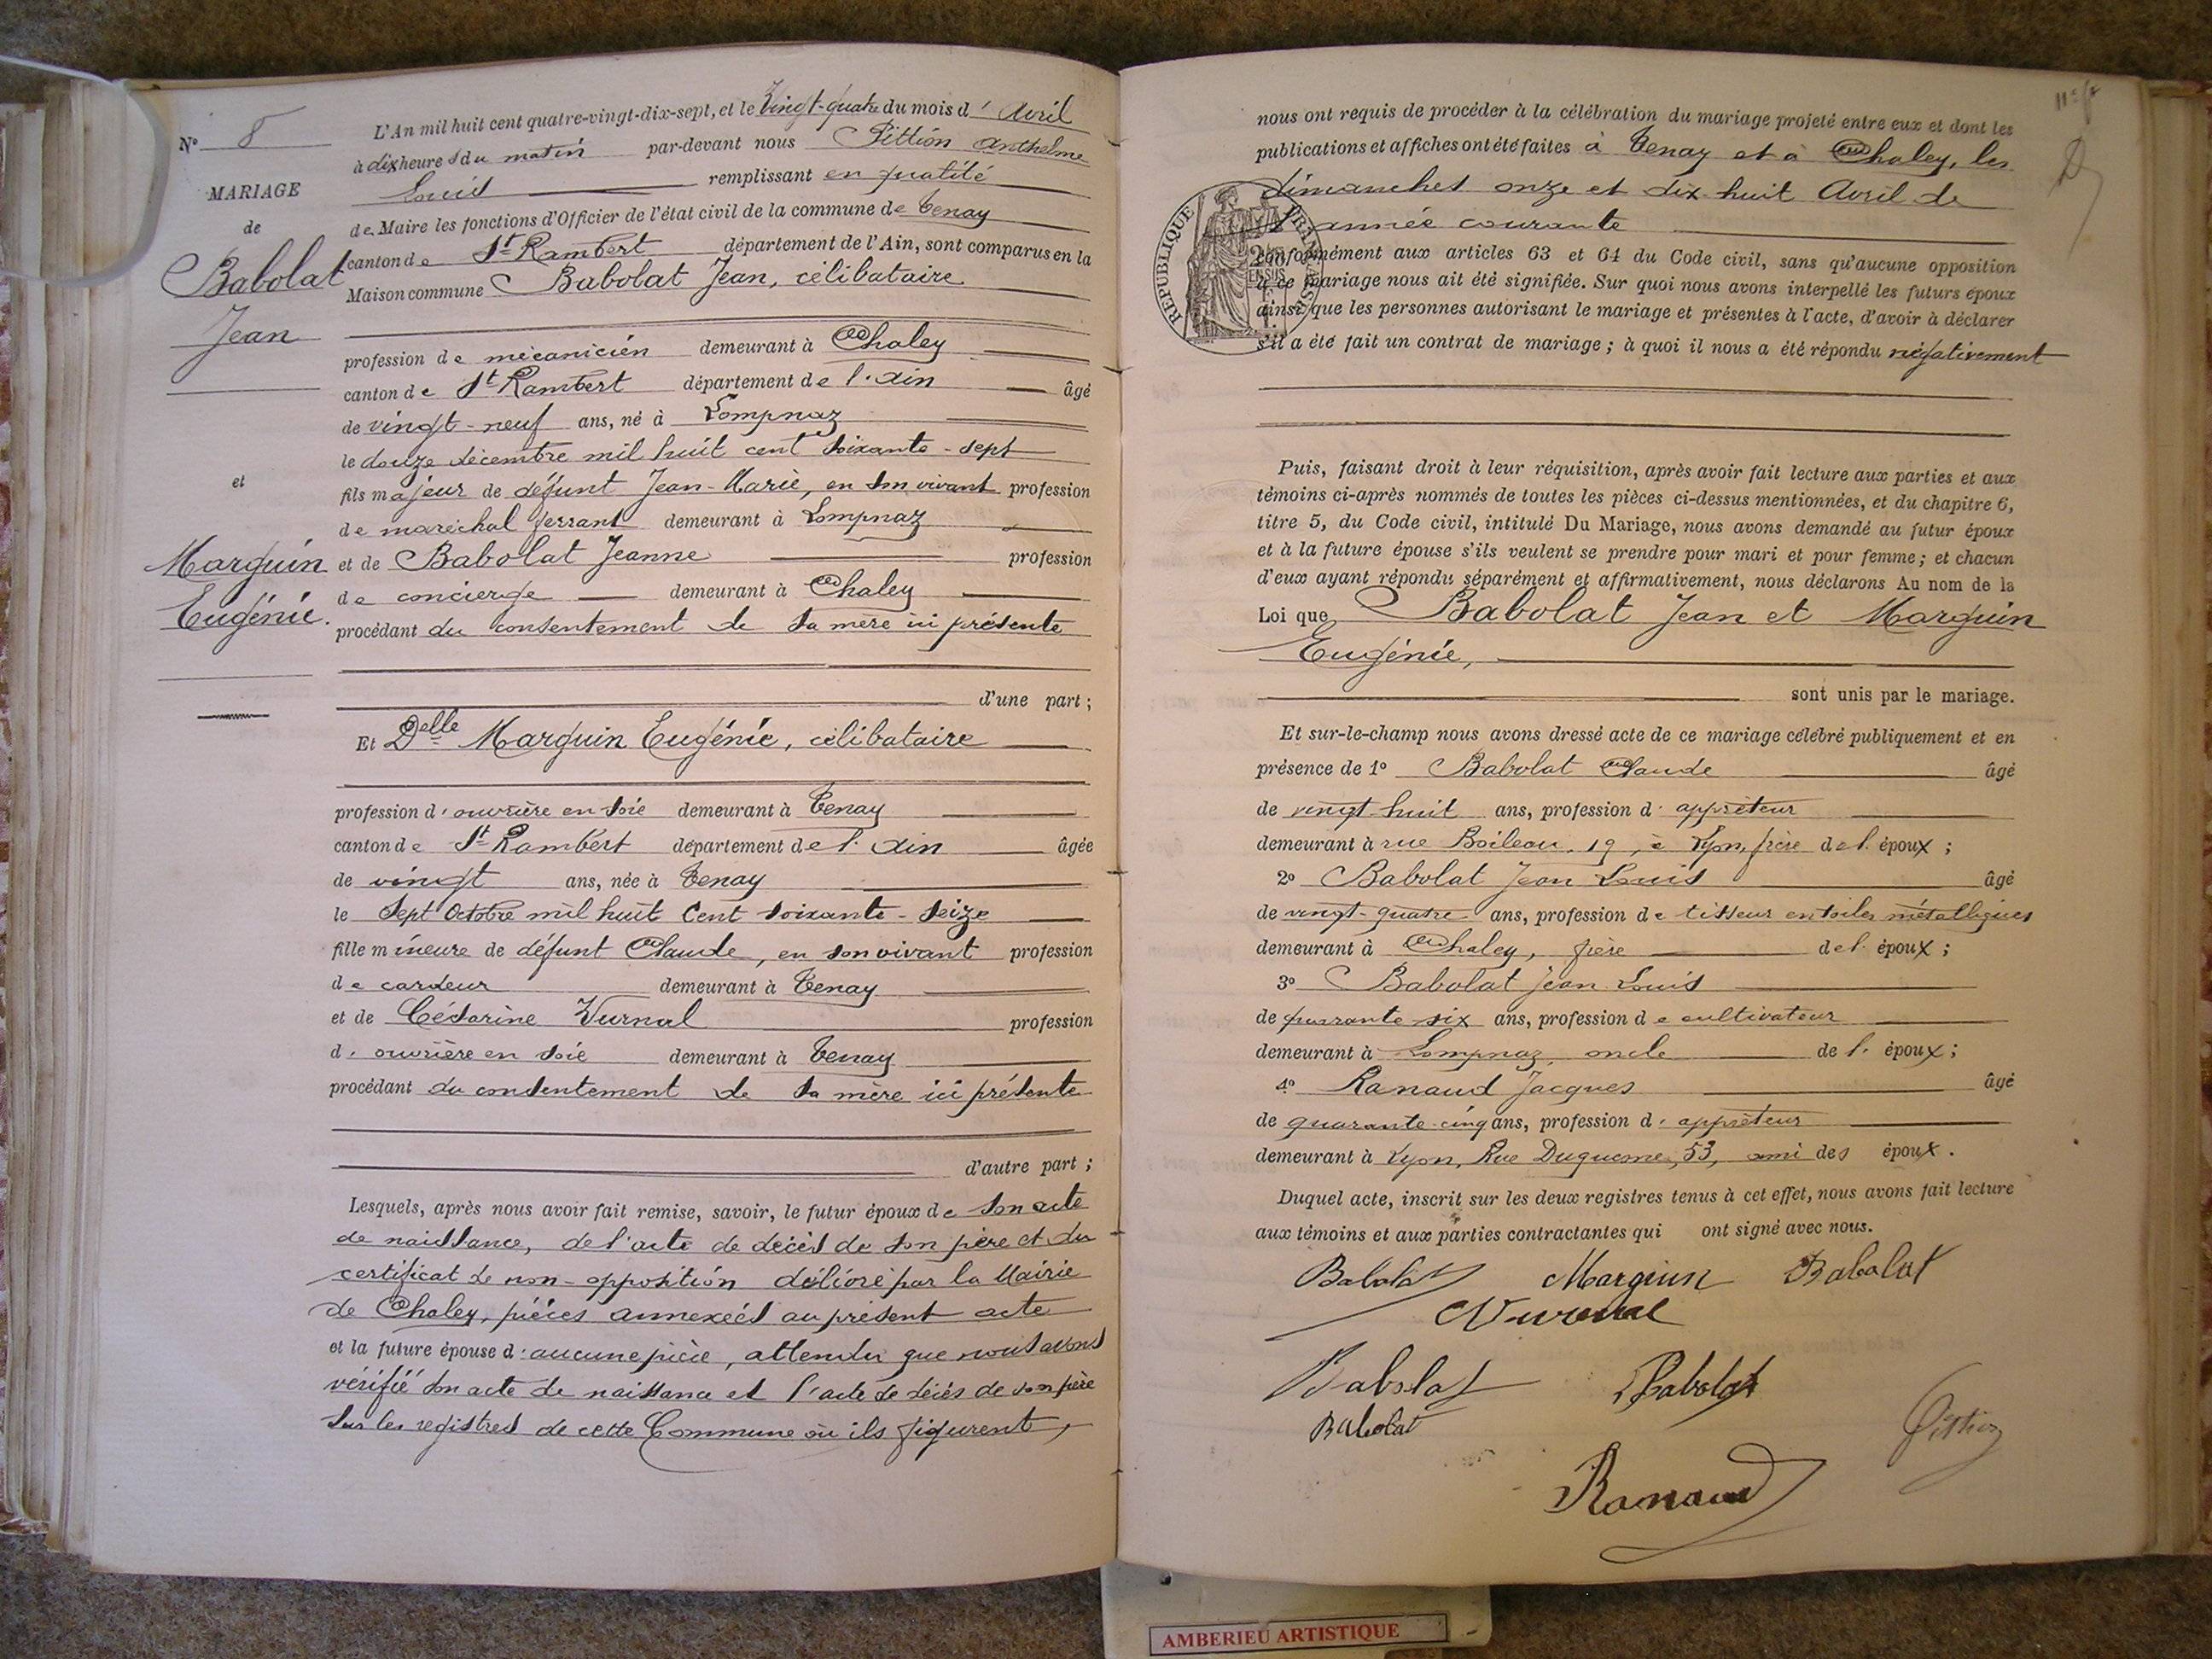 N° 8
MARIAGE
de
Babolat
Jean
et
Marguin
Eugénie.
L'An mil huit cent quatre-vingt-dix-sept, et le Vingt-quatre du mois d' Avril
à dix heures du matin par-devant nous Pittion Anthelme
Louis remplissant en qualité
de Maire les fonctions d'Officier de l'état civil de la commune de Tenay
canton de St Rambert département de l'Ain, sont comparus en la
Maison commune Babolat Jean, célibataire
profession de mécanicien demeurant à Chaley
canton de St Rambert département de l'Ain âgé
de vingt-neuf ans, né à Lompnaz
le douze décembre mil huit cent soixante-sept
fils majeur de défunt Jean-Marie, en son vivant profession
de maréchal ferrant demeurant à Lompnaz
et de Babolat Jeanne profession
de concierge demeurant à Chaley
procédant du consentement de sa mère ici présente
d'une part ;
Et Delle Marguin Eugénie, célibataire
profession d'ouvrière en soie demeurant à Tenay
canton de St Rambert département de l'Ain âgée
de vingt ans, née à Tenay
le sept Octobre mil huit Cent soixante-seize
fille mineure de défunt Claude, en son vivant profession
de cardeur demeurant à Tenay
et de Césarine Vurnal profession
d'ouvrière en soie demeurant à Tenay
procédant du consentement de sa mère ici présente
d'autre part ;
Lesquels, après nous avoir fait remise, savoir, le futur époux de son acte
de naissance, de l'acte de décès de son père et du
certificat de non-opposition délivré par la Mairie
de Chaley, pièces annexées au présent acte
et la future épouse d'aucune pièce, attendu que nous avons
vérifié son acte de naissance et l'acte de décès de son père
sur les registres de cette Commune où ils figurent,
nous ont requis de procéder à la célébration du mariage projeté entre eux et dont les
publications et affiches ont été faites à Tenay et à Chaley, les
dimanches onze et dix-huit Avril de
l'année courante
conformément aux articles 63 et 64 du Code civil, sans qu'aucune opposition
à ce mariage nous ait été signifiée. Sur quoi nous avons interpellé les futurs époux
ainsi que les personnes autorisant le mariage et présentes à l'acte, d'avoir à déclarer
s'il a été fait un contrat de mariage ; à quoi il nous a été répondu négativement
RÉPUBLIQUE FRANÇAISE
Puis, faisant droit à leur réquisition, après avoir fait lecture aux parties et aux
témoins ci-après nommés de toutes les pièces ci-dessus mentionnées, et du chapitre 6,
titre 5, du Code civil, intitulé Du Mariage, nous avons demandé au futur époux
et à la future épouse s'ils veulent se prendre pour mari et pour femme ; et chacun
d'eux ayant répondu séparément et affirmativement, nous déclarons Au nom de la
Loi que Babolat Jean et Marguin
Eugénie,
sont unis par le mariage.
Et sur-le-champ nous avons dressé acte de ce mariage célébré publiquement et en
présence de 1° Babolat Claude âgé
de vingt-huit ans, profession d'apprêteur
demeurant à rue Boileau, 19, à Lyon, frère de l'époux ;
2° Babolat Jean Louis âgé
de vingt-quatre ans, profession de tisseur en toiles métalliques
demeurant à Chaley, frère de l'époux ;
3° Babolat Jean Louis
de quarante six ans, profession de cultivateur
demeurant à Lompnaz, oncle de l'époux ;
4° Ranaud Jacques âgé
de quarante-cinq ans, profession d'apprêteur
demeurant à Lyon, Rue Duquesne, 53, ami des époux.
Duquel acte, inscrit sur les deux registres tenus à cet effet, nous avons fait lecture
aux témoins et aux parties contractantes qui ont signé avec nous.
Babolat Marguin Babolat
Vurnal
Babolat Babolat
Babolat Pittion
Ranaud
AMBERIEU ARTISTIQUE